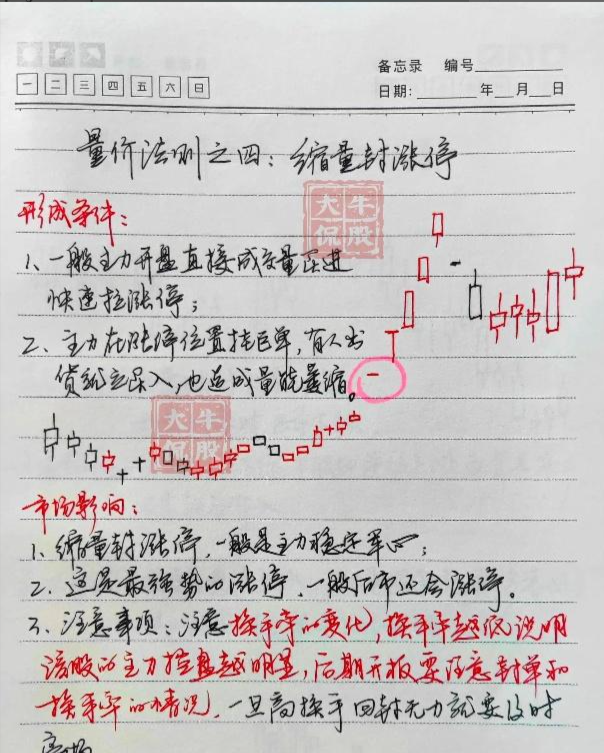 备忘录 编号
一 二 三 四 五 六 日
日期: 年 月 日
量价法则之四：缩量封涨停
大牛
侃股
形成条件：
1、一般主力开盘直接成交量跃进
快速拉涨停；
2、主力在涨停位置挂巨单，有人出
货就立足入，也造成量能萎缩。
大牛
侃股
市场影响：
1、缩量封涨停，一般是主力稳定军心；
2、这是最强势的涨停，一般后市还会涨停。
3、注意事项：注意换手率的变化，换手率越低说明
该股的主力控盘越明显，后期开板要注意封单和
换手率的情况，一旦高换手回封无力就要及时
离场